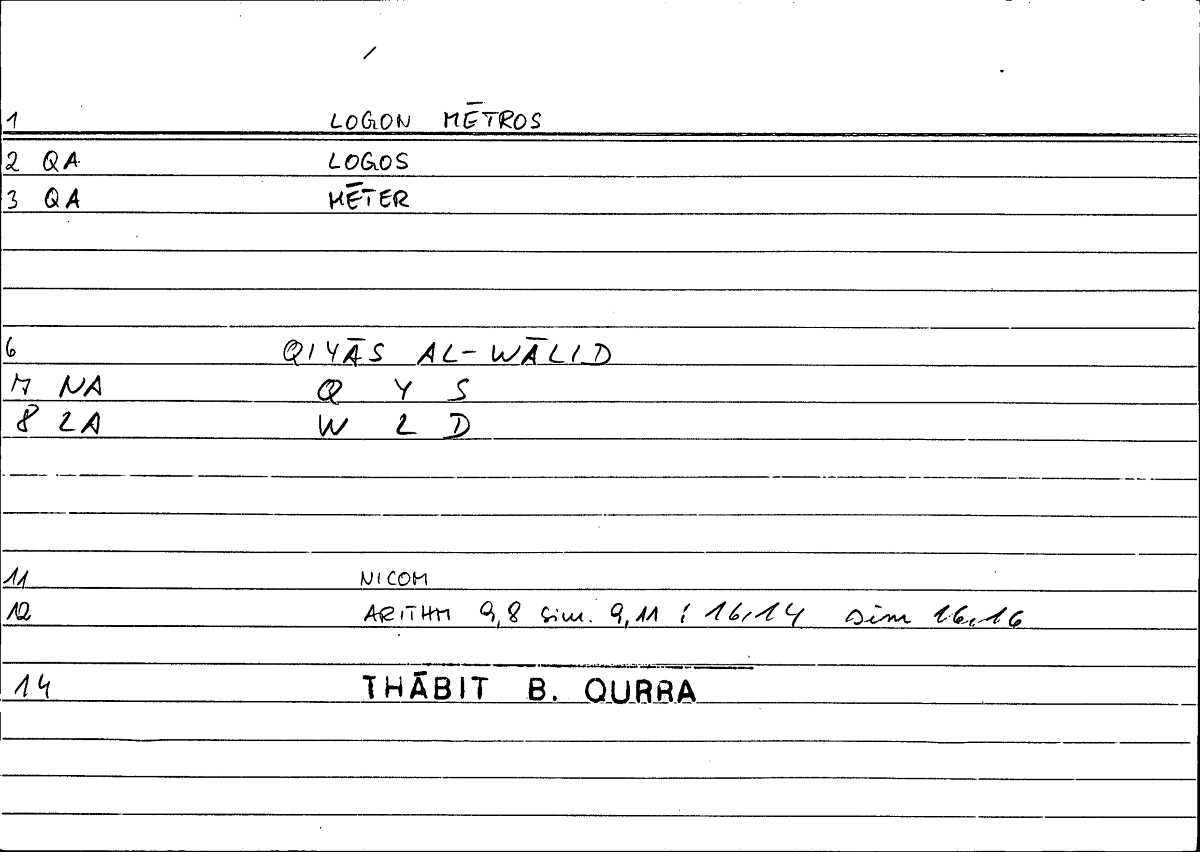 1 LOGON MĒTROS
2 QA LOGOS
3 QA MĒTER
6 QIYĀS AL-WĀLID
7 NA Q Y S
8 2A W L D
11 NICOM
12 ARITHM 9,8 sim. 9,11 ; 16,14 sim 16,16
14 THĀBIT B. QURRA